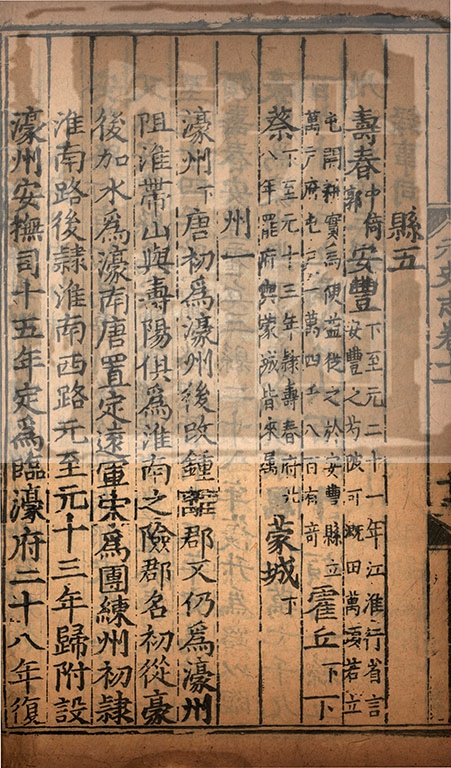 元史志卷十一
縣五
壽春中倚郭安豐下至元二十一年江淮行省言安豐之芍陂可溉田萬頃若立
屯開耕實為便益從之於安豐縣立萬戶府屯戶一萬四千八百有奇霍丘下下
蔡下至元十三年隸壽春府廿八年罷府與蒙城皆來屬蒙城下
州一
濠州下唐初爲濠州後改鍾離郡又仍爲濠州
阻淮帶山與壽陽俱爲淮南之險郡名初從豪
後加水爲濠南唐置定遠軍宋爲團練州初隸
淮南路後隸淮南西路元至元十三年歸附設
濠州安撫司十五年定爲臨濠府二十八年復